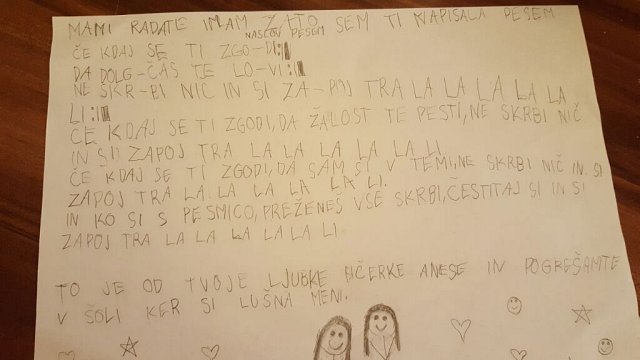 MAMI RADATE IMAM ZATO SEM TI NAPISALA PESEM
NASLOV PESEM
ČE KDAJ SE TI ZGO-DI:
DA DOLG-ČAS TE LO-VI:
NE SKR-BI NIČ IN SI ZA-POJ TRA LA LA LA LA LA
LI:
ČE KDAJ SE TI ZGODI, DA ŽALOST TE PESTI, NE SKRBI NIČ
IN SI ZAPOJ TRA LA LA LA LA LA LI.
ČE KDAJ SE TI ZGODI, DA SAM SI V TEMI, NE SKRBI NIČ IN SI
ZAPOJ TRA LA LA LA LA LA LI.
IN KO SI S PESMICO, PREŽENEŠ VSE SKRBI, ČESTITAJ SI IN SI
ZAPOJ TRA LA LA LA LA LA LI.
TO JE OD TVOJE LJUBKE HČERKE ANESE IN POGREŠAMTE
V ŠOLI KER SI LUŠNA MENI.